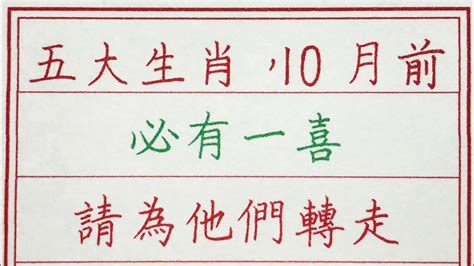 五大生肖,10月前
必有一喜
請為他們轉走